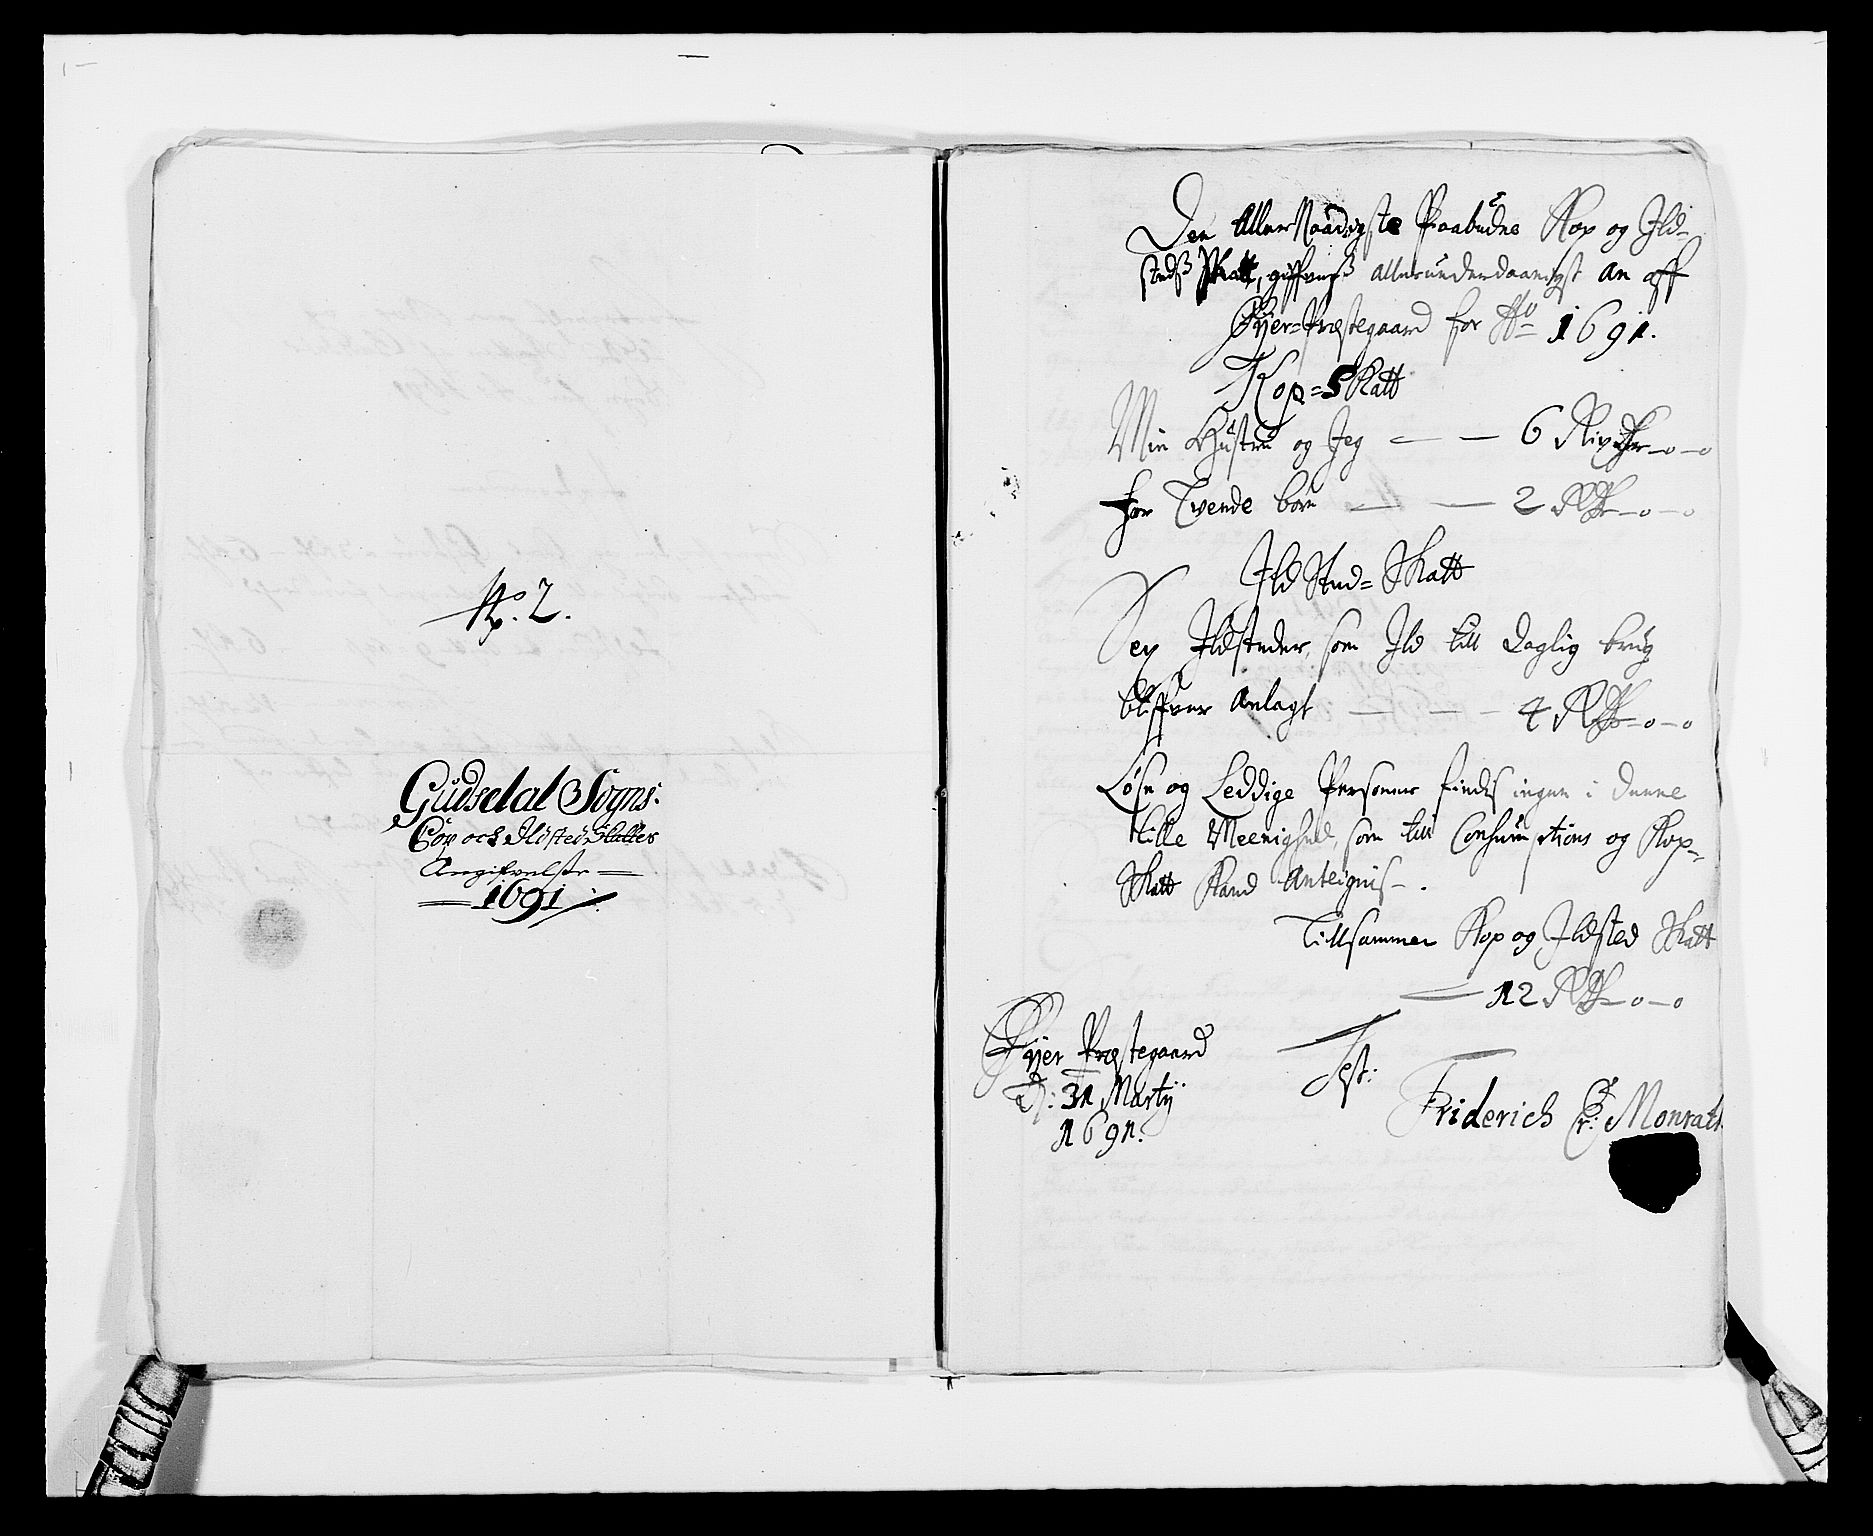 No. 2.
Gudsdal Sogns:
Cop och Ildsted Skatters
Angifvelse
1691
Den Aller Naadigste Paabudne Kop og Ild-
stedß Skatt, giffveß allerunderdaanigst an aff
Øyer-Præstegaard for Ao 1691.
Kop-Skatt
Min Hustru og Jeg — — 6 Rixdlr — o — o
for Tvende børn — — 2 Rdlr — o — o
Ild Sted-Skatt
Sex Ildsteder, som Ild till daglig brug
bliffver anlagt — — — 4 Rdlr — o — o
Løse og Leddige Personer findes ingen i denne
lille Meenighed, som till Consumptions og Kop-
Skatt kand anteignis.
Tillsammen Kop og Ildsted Skatt
— 12 Rdlr — o — o
Øyer Præstegaard
D: 31 Martij
1691.
Test:
Friderich Chr: Monrath